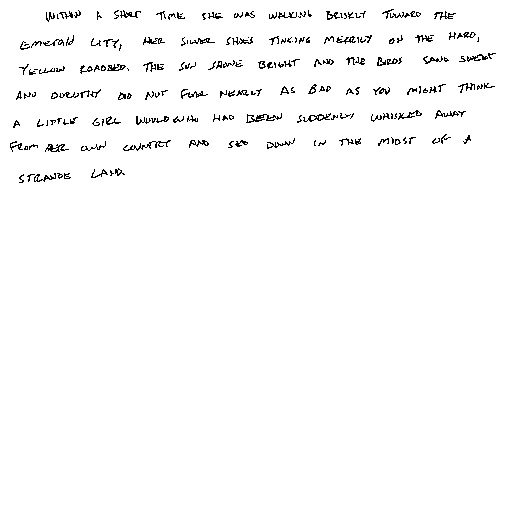 WITHIN A SHORT TIME SHE WAS WALKING BRISKLY TOWARD THE
EMERALD CITY, HER SILVER SHOES TINKING MERRILY ON THE HARD,
YELLOW ROADBED. THE SUN SHONE BRIGHT AND THE BIRDS SANG SWEET
AND DOROTHY DID NOT FEEL NEARLY AS BAD AS YOU MIGHT THINK
A LITTLE GIRL WOULD WHO HAD BEEN SUDDENLY WHISKED AWAY
FROM HER OWN COUNTRY AND SET DOWN IN THE MIDST OF A
STRANGE LAND.